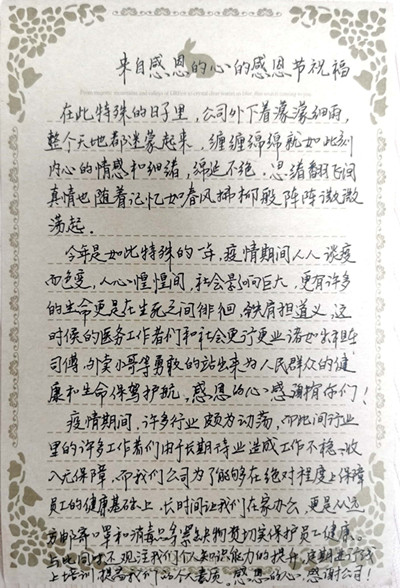 来自感恩的心的感恩节祝福
在此特殊的日子里，公司外下着濛濛细雨，
整个天地都迷蒙起来，缠缠绵绵就如此刻
内心的情感和细绪，绵延不绝。思绪翻飞间
真情也随着记忆如春风拂柳般阵阵微微
荡起。
今年是如此特殊的一年，疫情期间人人谈疫
而色变，人心惶惶间，社会影响巨大，更有许多
的生命更是在生死之间徘徊，铁肩担道义，这
时候的医务工作者们和社会更行更业诸如
司傅，外卖小哥等勇敢的站出来为人民群众的健
康和生命保驾护航，感恩的心感谢有你们！
疫情期间，许多行业颇为动荡，而此间行业
里的许多工作者们由于长期待业造成工作不稳，收
入无保障，而我们公司为了能够在绝对程度上保障
员工的健康基础上，长时间让我们在家办公，更是从远
方邮寄口罩和消毒品等紧缺物资切实保护员工健康。
与此同时关注我们个人知识能力的提升，定期进行线
上培训，提高我们的个人素质。感恩的心，感谢公司！